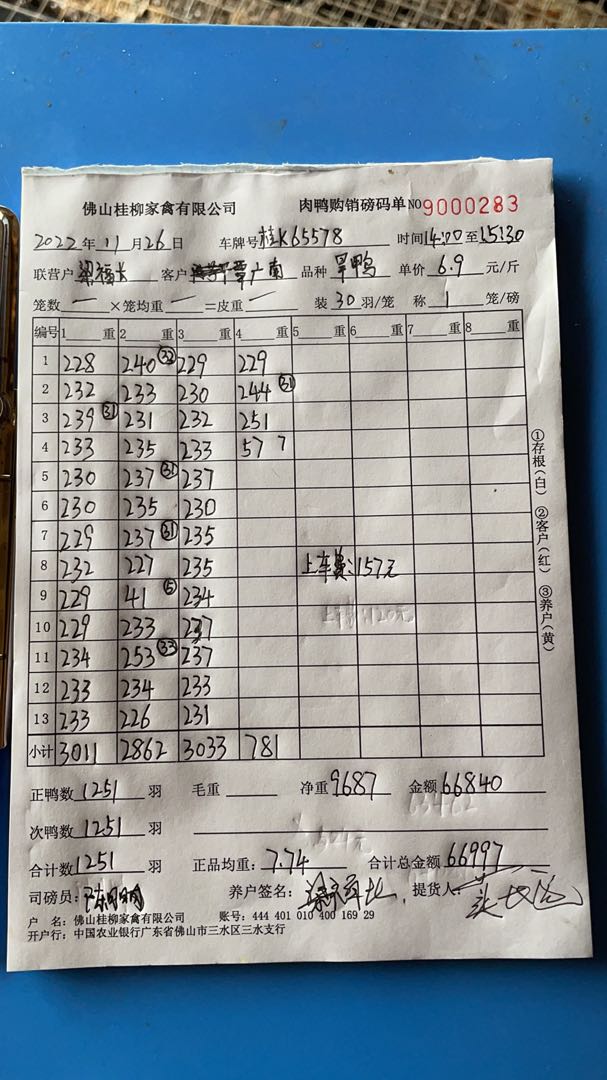 佛山桂柳家禽有限公司 肉鸭购销磅码单 NO 9000283
2022年11月26日 车牌号桂K65578 时间14:00至15:30
联营户 梁福长 客户 覃广南 品种 旱鸭 单价 6.9 元/斤
笼数 一 ×笼均重 一 =皮重 一 装 30 羽/笼 称 1 笼/磅
编号 1 重 2 重 3 重 4 重 5 重 6 重 7 重 8 重
1 228 240 32 229 229
2 232 233 230 244 31
3 239 31 231 232 251
4 233 235 233 57 7
5 230 237 31 237
6 230 235 230
7 229 237 31 235
8 232 227 235 上车费:157元
9 229 41 5 234
10 229 233 237
11 234 253 33 237
12 233 234 233
13 233 226 231
小计 3011 2862 3033 781
①存根(白) ②客户(红) ③养户(黄)
正鸭数 1251 羽 毛重 净重 9687 金额 66840
次鸭数 1251 羽
合计数 1251 羽 正品均重: 7.74 合计总金额 66997
司磅员: 养户签名: 提货人:
户 名: 佛山桂柳家禽有限公司 账号: 444 401 010 400 169 29
开户行: 中国农业银行广东省佛山市三水区三水支行